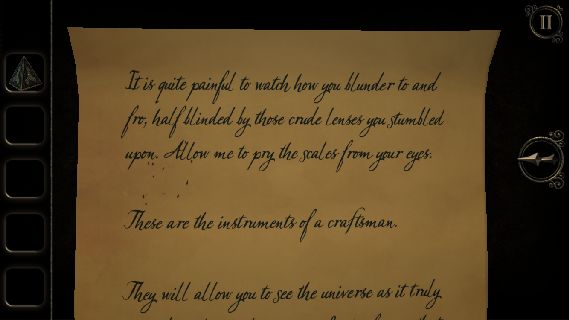 It is quite painful to watch how you blunder to and
fro, half blinded by those crude lenses you stumbled
upon. Allow me to pry the scales from your eyes.
These are the instruments of a craftsman.
They will allow you to see the universe as it truly